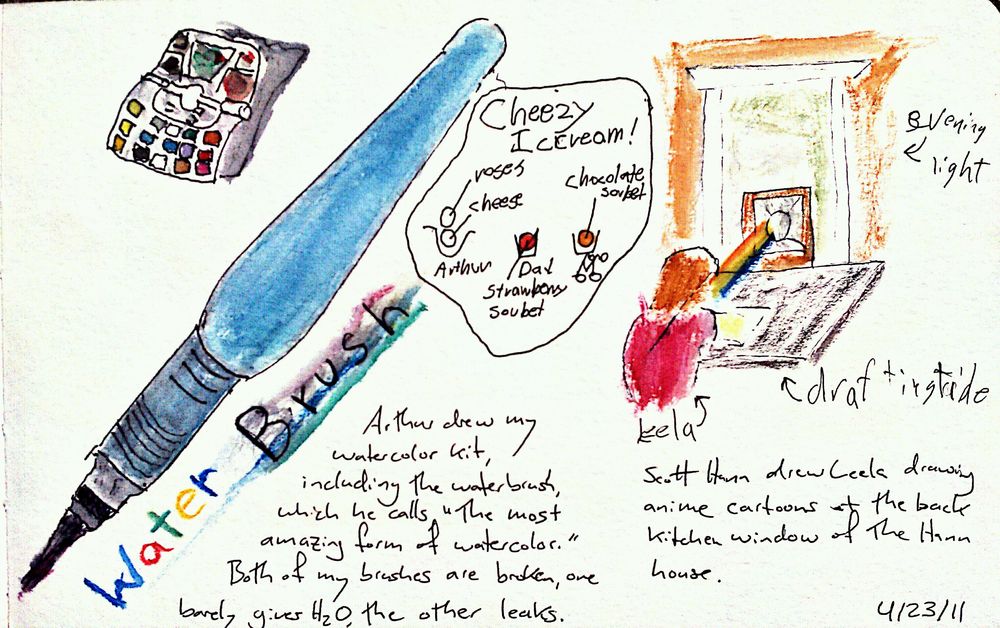 Cheezy
Icecream!
roses
cheese
Arthur
Dad
Strawberry
soubet
chocolate
sorbet
Evening
light
drafting side
Leela
Water Brush
Arthur drew my
watercolor kit,
including the waterbrush,
which he calls "The most
amazing form of watercolor."
Both of my brushes are broken, one
barely gives H2O, the other leaks.
Scott Hann drew Leela drawing
anime cartoons at the back
kitchen window of The Hann
house.
4/23/11